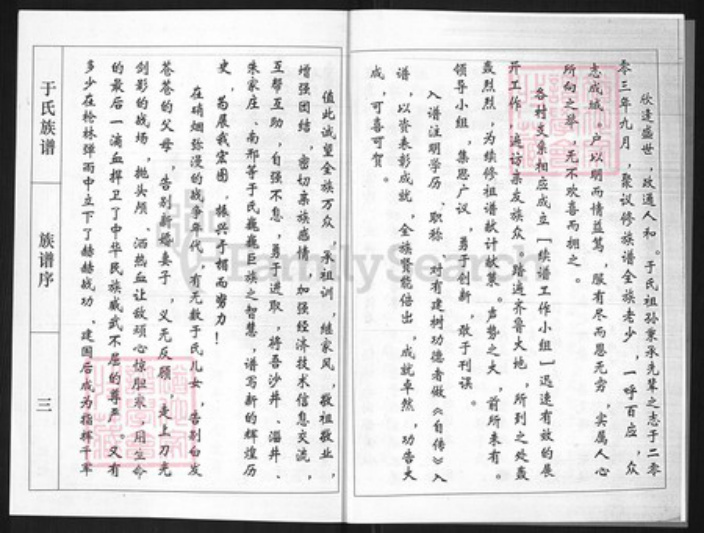 欣逢盛世，政通人和。于氏祖孙秉承先辈之志于二零
零三年九月，聚议修族谱全族老少，一呼百应，众
志成城，户以明而情益笃，服有尽而恩无穷，实属人心
所向之举，无不欢喜而拥之。
各村支系相应成立［续谱工作小组］迅速有效的展
开工作，遍访亲友族众，踏遍齐鲁大地，所到之处轰
轰烈烈，为续修祖谱献计献策。声势之大，前所未有。
领导小组，集思广议，勇于创新，敢于刊误。
入谱注明学历、职称，对有建树功德者做《自传》入
谱，以资表彰成就，全族贤能倍出，成就卓然，功告大
成，可喜可贺。
值此诚望全族万众，承祖训，继家风，敬祖敬业，
增强团结，密切亲族感情，加强经济技术信息交流，
互帮互助，自强不息，勇于进取，将吾沙井、湢井、
朱家庄、南邢等于氏巍巍巨族之智慧，谱写新的辉煌历
史，为展我宏图，振兴于楣而努力！
在硝烟弥漫的战争年代，有无数于氏儿女，告别白发
苍苍的父母，告别新婚妻子，义无反顾，走上刀光
剑影的战场，抛头颅、洒热血让敌顽心惊胆寒，用生命
的最后一滴血捍卫了中华民族威武不屈的尊严。又有
多少在枪林弹雨中立下了赫赫战功、建国后成为指挥千军
于氏族谱
族谱序
三
FamilySearch